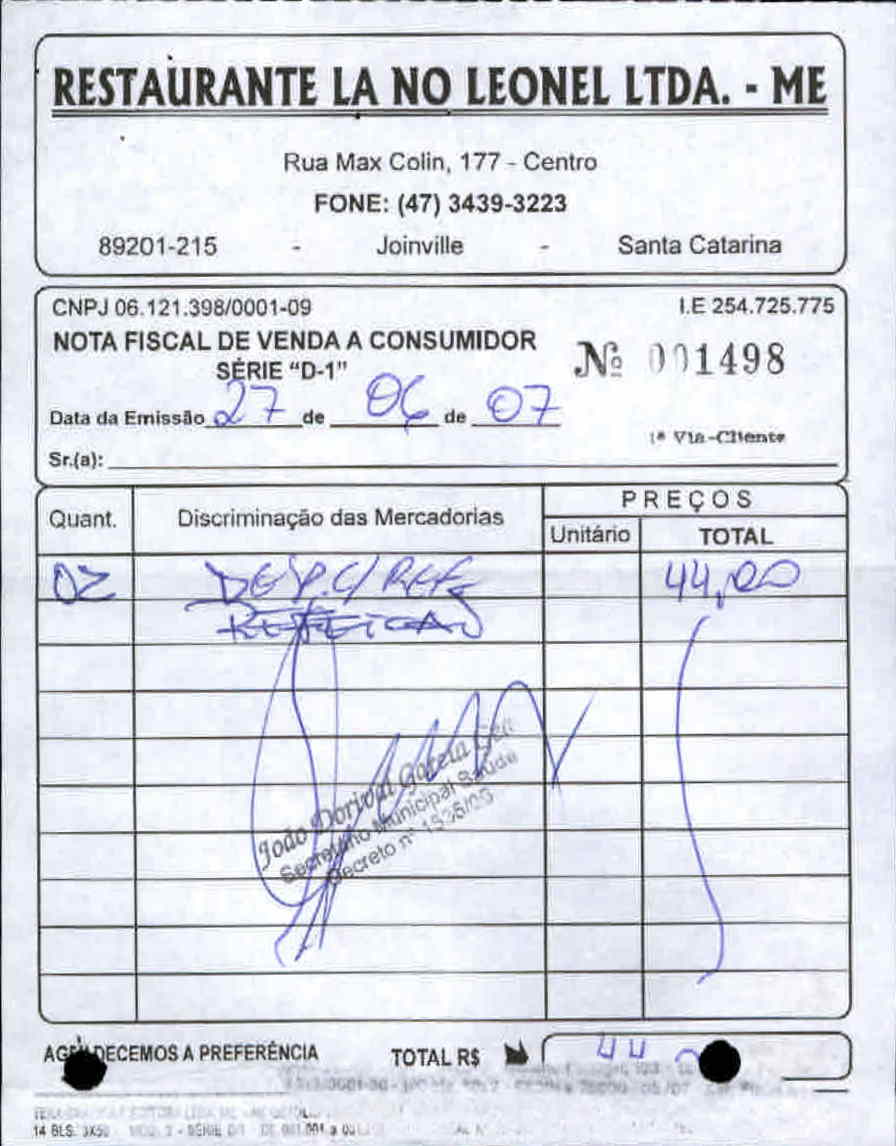 RESTAURANTE LA NO LEONEL LTDA. - ME
Rua Max Colin, 177 - Centro
FONE: (47) 3439-3223
89201-215 - Joinville - Santa Catarina
CNPJ 06.121.398/0001-09 I.E 254.725.775
NOTA FISCAL DE VENDA A CONSUMIDOR
SÉRIE "D-1" Nº 001498
Data da Emissão 27 de 06 de 07
1ª Via-Cliente
Sr.(a):
Quant. Discriminação das Mercadorias PREÇOS
Unitário TOTAL
02 DESP. C/ REFE 44,00
REFEICAO
João Dorival Garcia
Secretário Municipal Saúde
Decreto nº
AGRADECEMOS A PREFERÊNCIA TOTAL R$ 44
14 BLS. 3X50